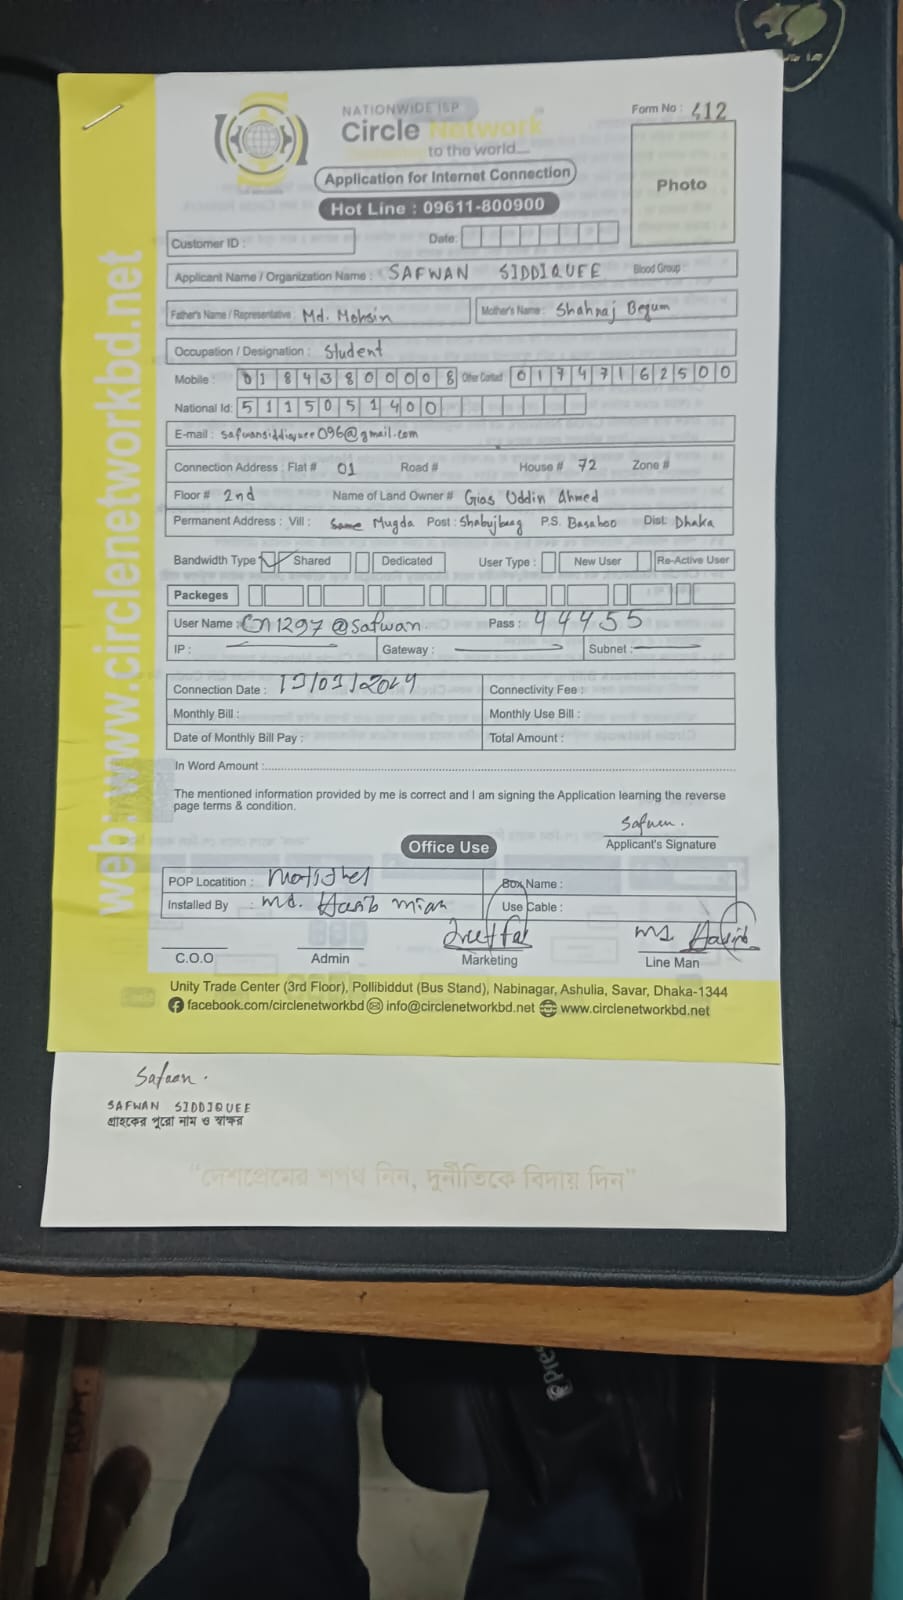 NATIONWIDE ISP
Circle Network
to the world...
Form No : 412
Photo
Application for Internet Connection
Hot Line : 09611-800900
Customer ID :
Date:
Applicant Name / Organization Name : SAFWAN SIDDIQUEE Blood Group :
Father's Name / Representative : Md. Mohsin Mother's Name : Shahnaj Begum
Occupation / Designation : Student
Mobile : 01843800008 Other Contact 01747162500
National Id: 5115051400
E-mail : safwansiddiquee096@gmail.com
Connection Address : Flat # 01 Road # House # 72 Zone #
Floor # 2nd Name of Land Owner # Gias Uddin Ahmed
Permanent Address : Vill : Same Mugda Post : Shabujbaag P.S. Basaboo Dist. Dhaka
Bandwidth Type Shared Dedicated User Type : New User Re-Active User
Packeges
User Name : Cn1297@Safwan. Pass : 44455
IP : Gateway : Subnet :
Connection Date : Connectivity Fee :
Monthly Bill : Monthly Use Bill :
Date of Monthly Bill Pay : Total Amount :
In Word Amount :
The mentioned information provided by me is correct and I am signing the Application learning the reverse
page terms & condition.
Safwan.
Applicant's Signature
Office Use
POP Locatition : Motijhel Box Name :
Installed By : Md. Hasib Miah Use Cable :
C.O.O Admin Marketing Line Man
Unity Trade Center (3rd Floor), Pollibiddut (Bus Stand), Nabinagar, Ashulia, Savar, Dhaka-1344
facebook.com/circlenetworkbd info@circlenetworkbd.net www.circlenetworkbd.net
web: www.circlenetworkbd.net
Safwan.
SAFWAN SIDDIQUEE
গ্রাহকের পুরো নাম ও স্বাক্ষর
"দেশপ্রেমের শপথ নিন, দুর্নীতিকে বিদায় দিন"